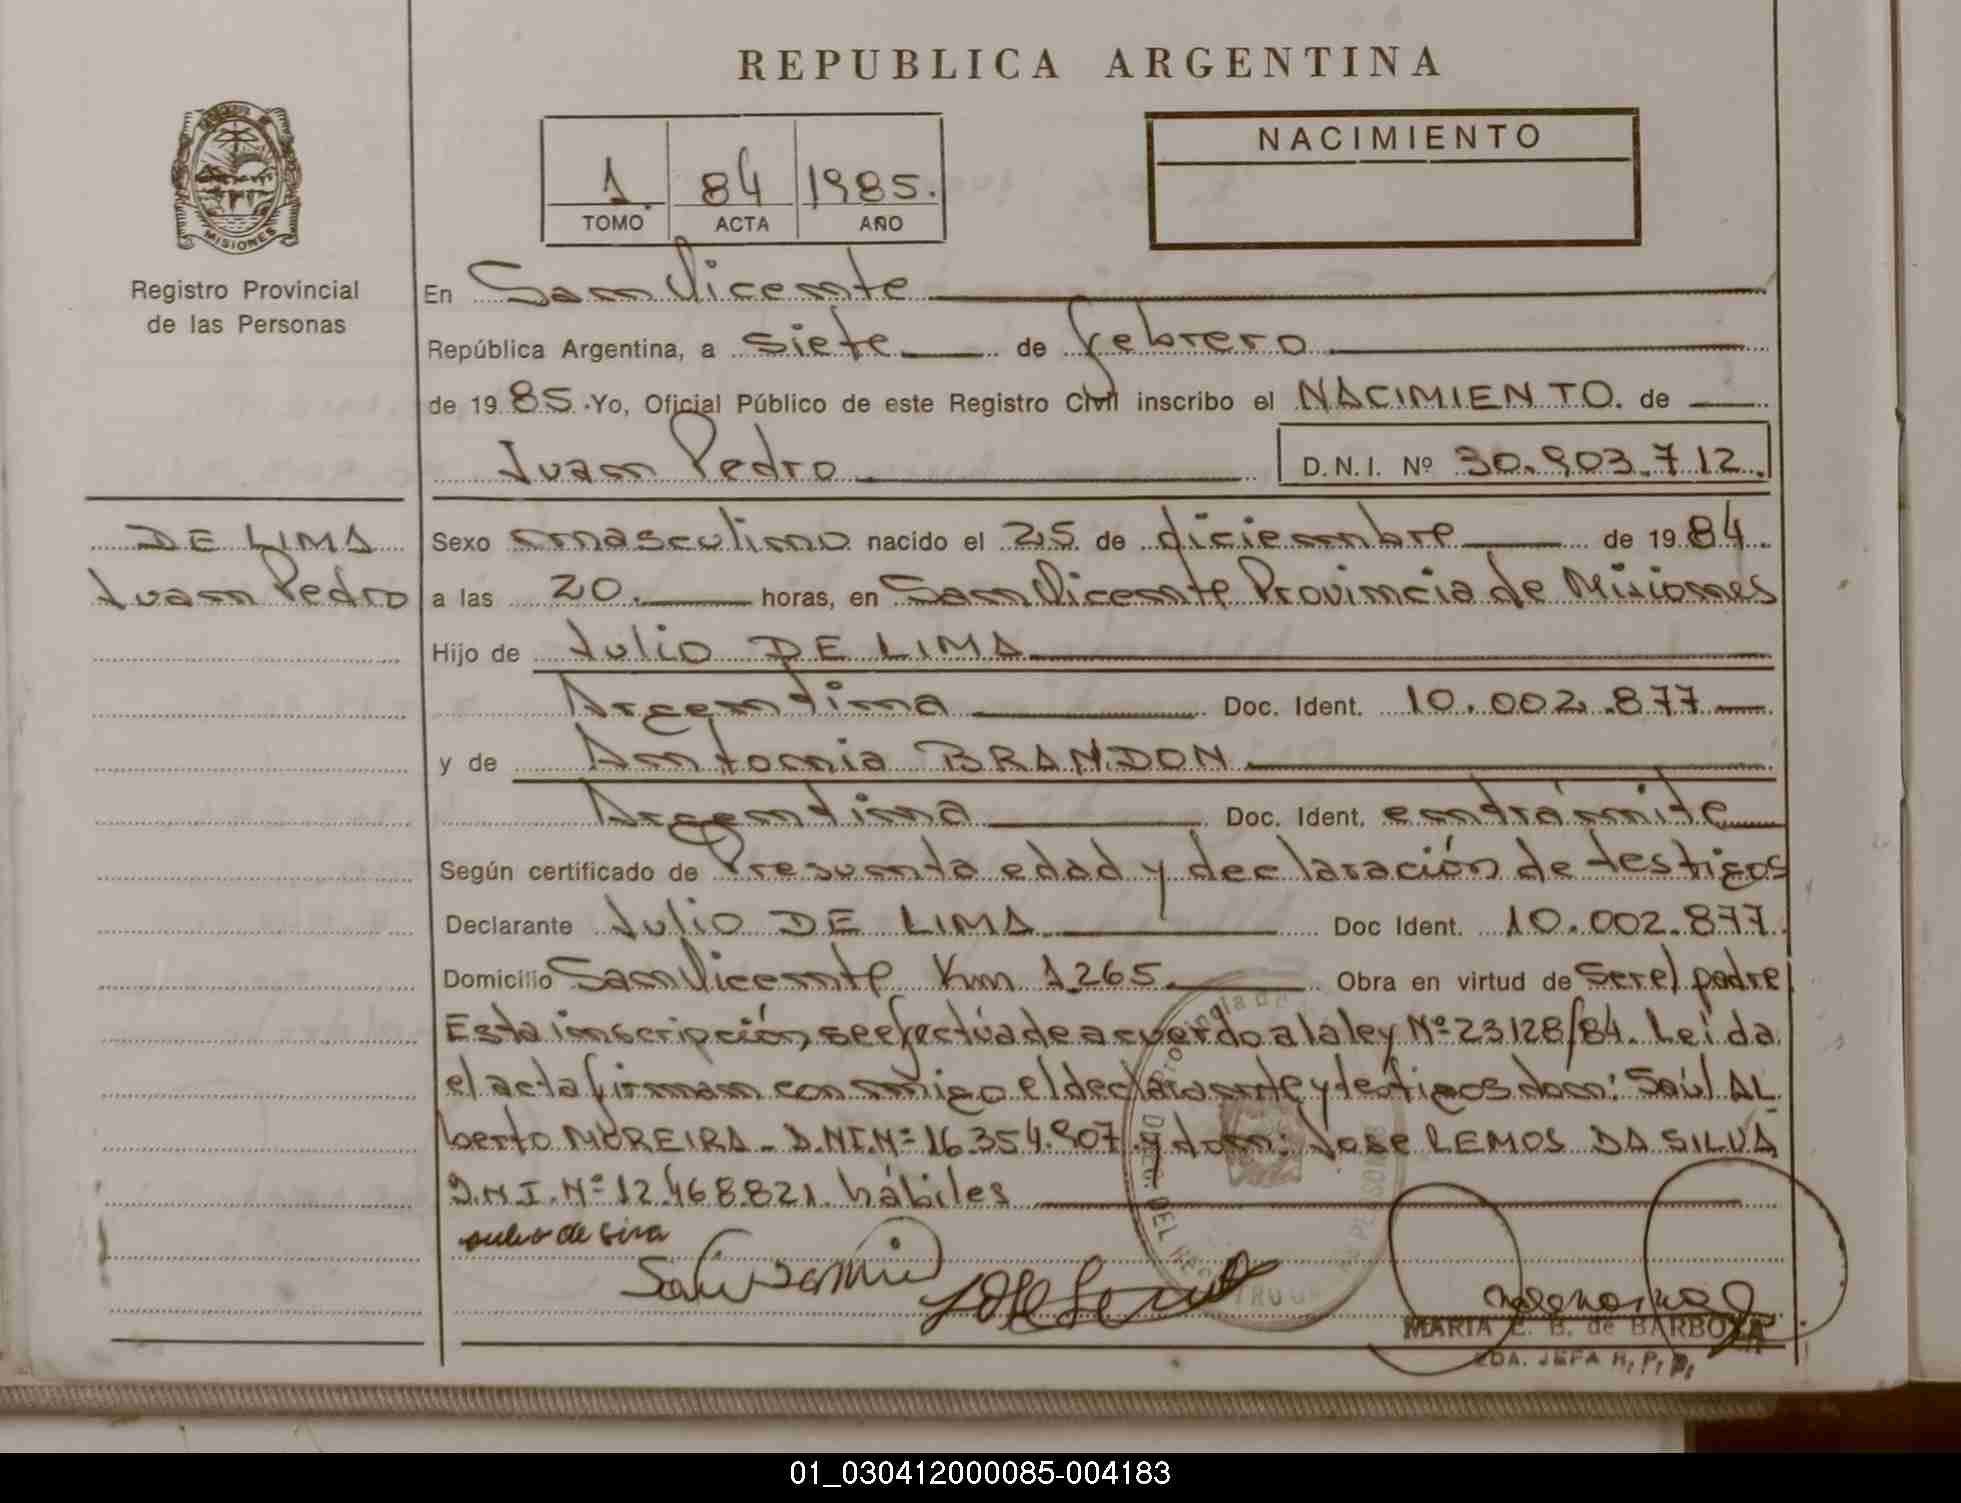 REPUBLICA ARGENTINA
MISIONES
Registro Provincial
de las Personas
1 84 1985.
TOMO ACTA AÑO
NACIMIENTO
En San Vicente
República Argentina, a siete de febrero
de 1985. Yo, Oficial Público de este Registro Civil inscribo el NACIMIENTO. de
Juan Pedro D.N.I. Nº 30.903.712.
DE LIMA
Juan Pedro
Sexo masculino nacido el 25 de diciembre de 1984.
a las 20. horas, en San Vicente Provincia de Misiones
Hijo de Julio DE LIMA
Argentina Doc. Ident. 10.002.877
y de Antonia BRANDON
Argentina Doc. Ident. en trámite
Según certificado de Presunta edad y declaración de testigos
Declarante Julio DE LIMA Doc Ident. 10.002.877.
Domicilio San Vicente Km 1265. Obra en virtud de Ser el padre
Esta inscripción se efectúa de acuerdo a la ley Nº 23128/84. Leída
el acta firman conmigo el declarante y testigos don: Saúl AL
berto MOREIRA - D.NI.Nº 16.354.907 y don: Jose LEMOS DA SILVA
D.N.I. Nº 12.468.821. hábiles
MARIA E. B. de BARBOZA
EDA. JEFA R. P. P.
01_030412000085-004183